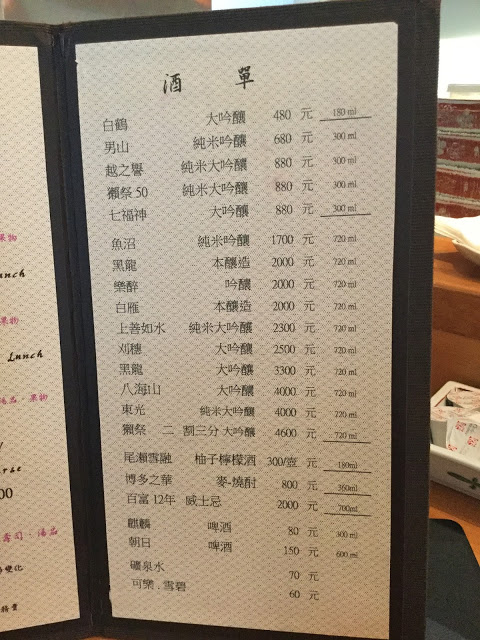 酒 單
白鶴 大吟釀 480 元 180 ml
男山 純米吟釀 680 元 300 ml
越之譽 純米大吟釀 880 元 300 ml
獺祭 50 純米大吟釀 880 元 300 ml
七福神 大吟釀 880 元 300 ml
魚沼 純米吟釀 1700 元 720 ml
黑龍 本釀造 2000 元 720 ml
樂醉 吟釀 2000 元 720 ml
白雁 本釀造 2000 元 720 ml
上善如水 純米大吟釀 2300 元 720 ml
刈穗 大吟釀 2500 元 720 ml
黑龍 大吟釀 3300 元 720 ml
八海山 大吟釀 4000 元 720 ml
東光 純米大吟釀 4000 元 720 ml
獺祭 二 割三分 大吟釀 4600 元 720 ml
尾瀨雪融 柚子檸檬酒 300/壺 元 180ml
博多之華 麥-燒酎 800 元 360ml
百富 12年 威士忌 2000 元 700ml
麒麟 啤酒 80 元 300 ml
朝日 啤酒 150 元 600 ml
礦泉水 70 元
可樂 . 雪碧 60 元
果物
unch
果物
Lunch
湯品 . 果物
00
壽司 . 湯品